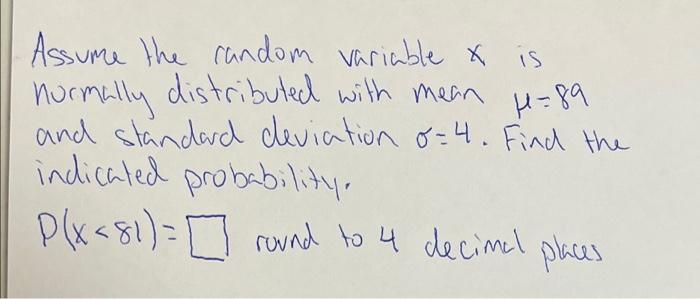 Assume the random variable x is
normally distributed with mean μ=89
and standard deviation σ=4. Find the
indicated probability.
P(x<81)=□ round to 4 decimal places